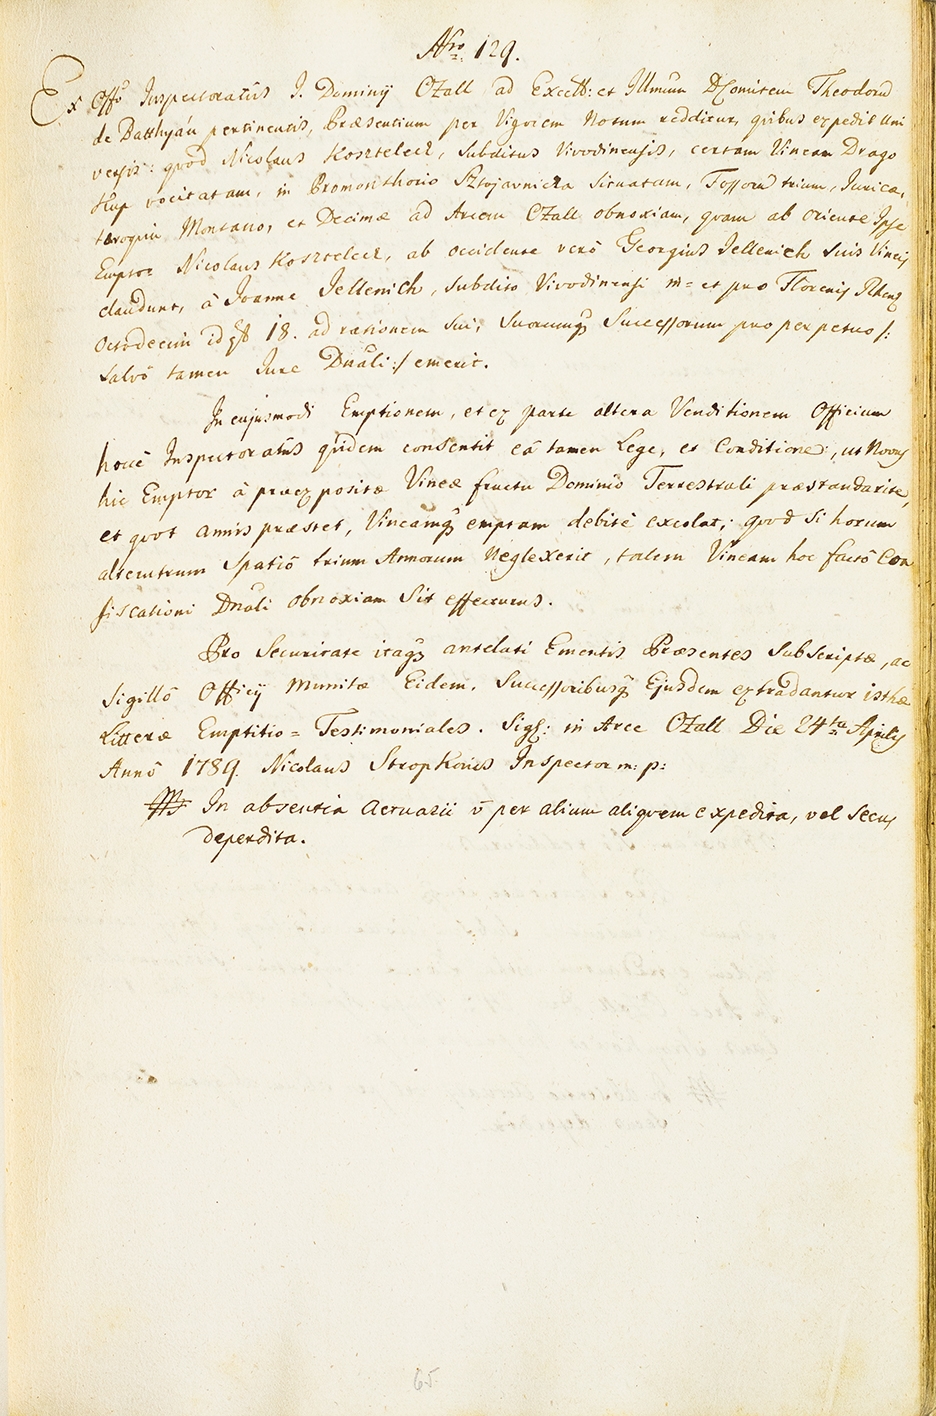 Nro 129.
Ex Offo Inspectoratûs I. Dominij Ozall ad Excell: et Illmum D Comitem Theodorū
de Batthyán pertinentis, Præsentium per Vigorem Notum redditur, quibus expedit Uni
versis: quod Nicolaus Koszteletz, Subditus Vivodinensis, certam Vineam Drago
Kup vocitatam, in Promonthorio Sztojavnicza Situatam, Fossorū trium, Juricæ,
teroquin Montano, et Decimæ ad Arcem Ozall obnoxiam, quam ab oriente Ipse
Emptor Nicolaus Koszteletz, ab occidente verô Georgius Jellenich Suis Vineis
claudunt, â Joanne Jellenich, Subdito Vivodinensi m= et pro Florenis Rhens
Octodecim id est 18. ad rationem Sui, Suorumq Successorum pro perpetuo /:
Salvô tamen Jure Dnāli :/ emerit.
In cujusmodi Emptionem, et ex parte altera Venditionem Officium
hocce Inspectoratûs quidem consentit eâ tamen Lege, et Conditione:, ut Novus
hic Emptor â præexpositæ Vineæ fructu Dominio Terrestrali præstandarite,
et quot annis præstet, Vineamq emptam debitè excolat; quod Si horum
alterutrum Spatiô trium Annorum Neglexerit, talem Vineam hoc factô Con
fiscationi Dnāli obnoxiam Sit effecturus.
Pro Securitate itaq antelati Ementis Præsentes Subscriptæ, ac
Sigillô Officij Munitæ Eidem, Successoribusq Ejusdem extradantur isthæ
Litteræ Emptitio= Testimoniales. Sigl: in Arce Ozall Die 24ta Aprilis
Annô 1789. Nicolaus Stropkovics Inspector m: p:
In absentia Actuarii v per alium aliquem expedita, vel Secus
deperdita.
65.